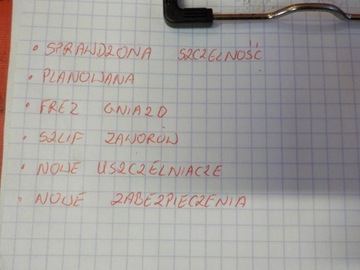 • SPRAWDZONA SZCZELNOŚĆ
• PLANOWANA
• FREZ GNIAZD
• SZLIF ZAWORÓW
• NOWE USZCZELNIACZE
• NOWE ZABEZPIECZENIA